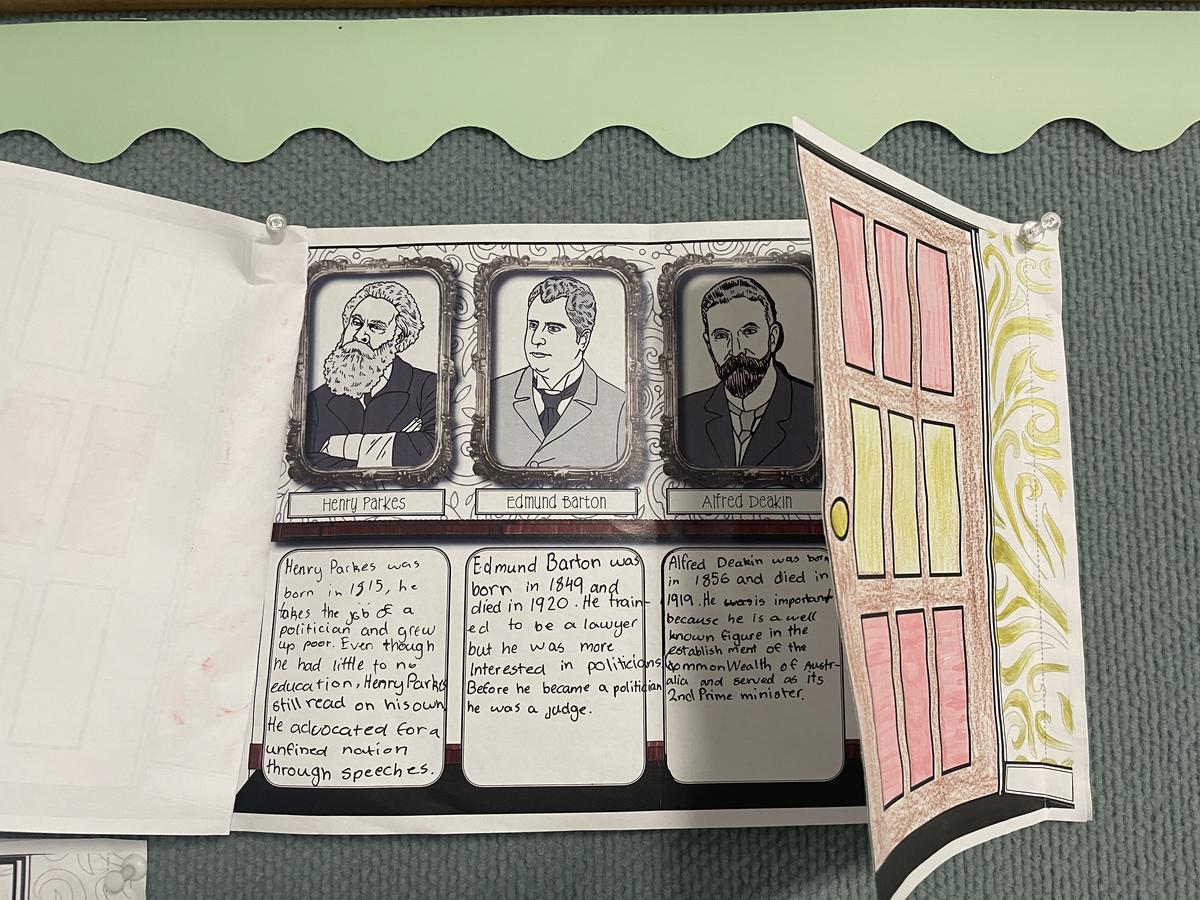 Henry Parkes
Edmund Barton
Alfred Deakin
Henry Parkes was
born in 1815, he
takes the job of a
politician and grew
up poor. Even though
he had little to no
education, Henry Parkes
still read on his own
He advocated for a
unfined nation
through speeches.
Edmund Barton was
born in 1849 and
died in 1920. He train-
ed to be a lawyer
but he was more
interested in politicians.
Before he became a politician
he was a judge.
Alfred Deakin was born
in 1856 and died in
1919. He was is important
because he is a well
known figure in the
establish ment of the
CommonWealth of Austr-
alia and served as its
2nd Prime minister.